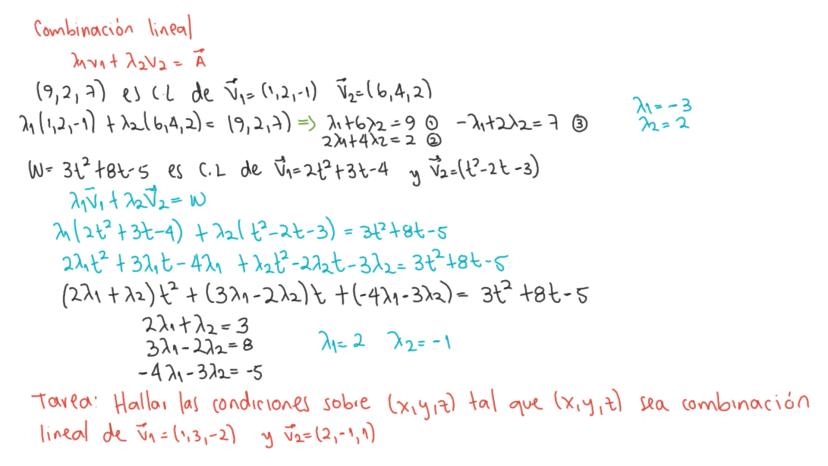 Combinación lineal
λ1v1 + λ2v2 = A⃗
(9,2,7) es C.L de v⃗1=(1,2,-1) v⃗2=(6,4,2)
λ1(1,2,-1) + λ2(6,4,2) = (9,2,7) => λ1+6λ2=9 ① -λ1+2λ2=7 ③
2λ1+4λ2=2 ②
λ1=-3
λ2=2
W= 3t²+8t-5 es C.L de v⃗1=2t²+3t-4 y v⃗2=(t²-2t-3)
λ1v⃗1 + λ2v⃗2 = W
λ1(2t²+3t-4) + λ2(t²-2t-3) = 3t²+8t-5
2λ1t² + 3λ1t-4λ1 + λ2t²-2λ2t-3λ2= 3t²+8t-5
(2λ1+λ2)t² + (3λ1-2λ2)t +(-4λ1-3λ2)= 3t²+8t-5
2λ1+λ2=3
3λ1-2λ2=8 λ1=2 λ2=-1
-4λ1-3λ2=-5
Tarea: Hallar las condiciones sobre (x,y,z) tal que (x,y,z) sea combinación
lineal de v⃗1=(1,3,-2) y v⃗2=(2,-1,1)